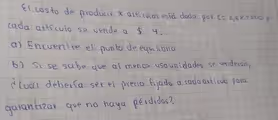 El costo de producir x artículos está dado por C= 2,8x+600 y
cada artículo se vende a $ 4.
a) Encuentre el punto de equilibrio
b) Si se sabe que al menos unidades se venderán,
¿Cuál debería ser el precio fijado a cada artículo para
garantizar que no haya pérdidas?